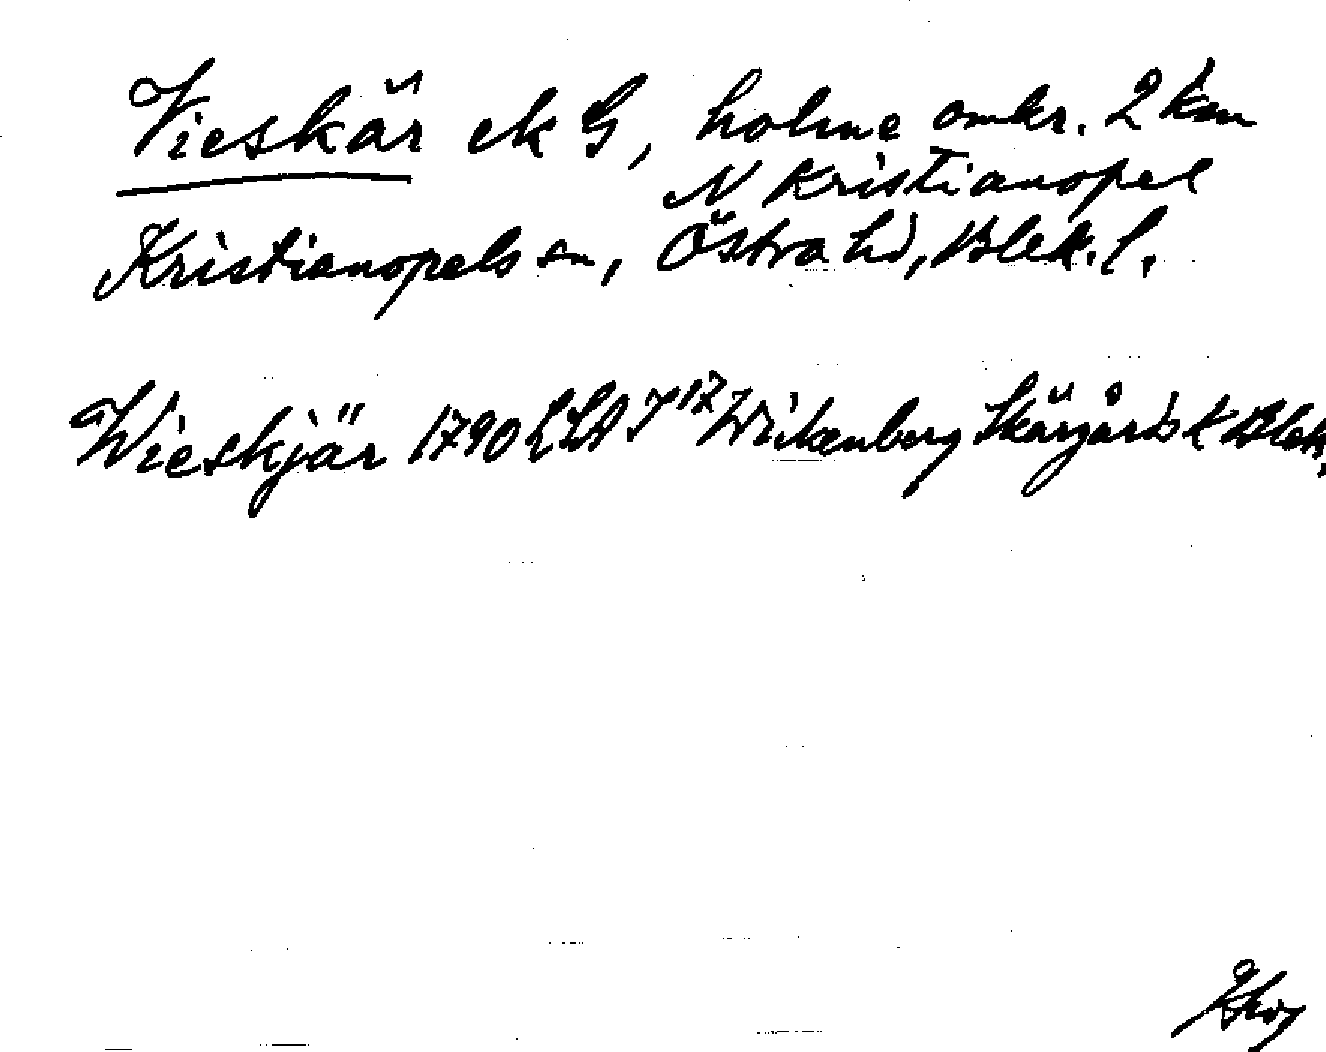 Vieskär ek G, holme omkr. 2 km
N Kristianopel
Kristianopels sn, Östra hd, Blek. l.
Wieskjär 1790 LSA I 17 Wikenberg Skärgårdsk Blek.